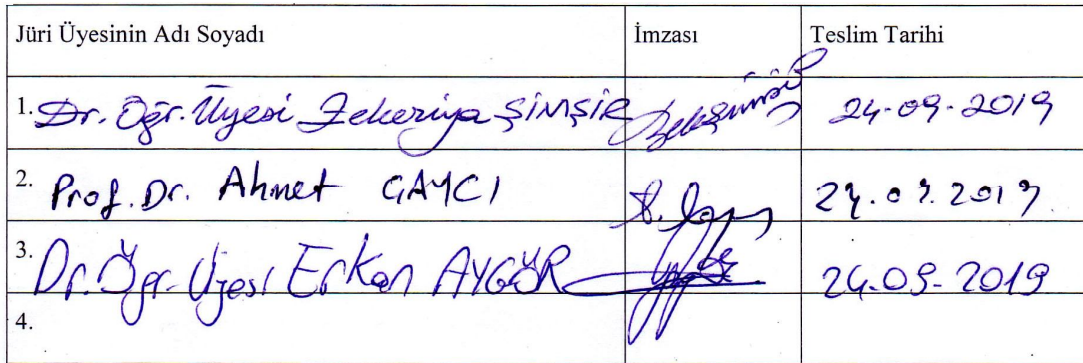 Jüri Üyesinin Adı Soyadı İmzası Teslim Tarihi
1. Dr. Öğr. Üyesi Zekeriya ŞİMŞİR 24-09-2019
2. Prof. Dr. Ahmet ÇAYCI 24.09.2019
3. Dr. Öğr. Üyesi Erkan AYGÖR 24-09-2019
4.